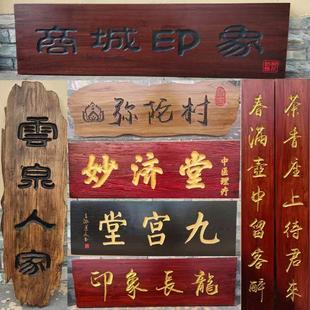 商城印象
雲泉人家
弥陀村
妙济堂
中医理疗
九宫堂
印象長龍
茶香座上待君来
春滿壶中留客醉